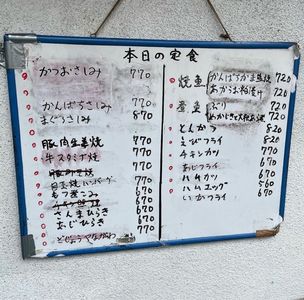 本日の定食
かつおさしみ 770
かんぱちさしみ 770
まぐろさしみ 870
豚肉生姜焼 770
牛スタミナ焼 770
目玉焼ハンバーグ 770
もつ煮こみ 670
さんまひらき 620
あじひらき 670
770
焼魚 かんぱちかま塩焼 720
あかうお粕漬け 720
煮魚 ぶり 720
720
とんかつ 820
えびフライ 820
チキンカツ 770
あじフライ 670
ハムカツ 670
ハムエッグ 560
いかフライ 670